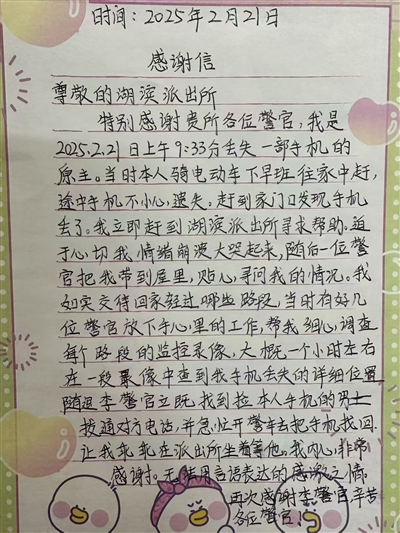 时间：2025年2月21日
感谢信
尊敬的湖滨派出所
特别感谢贵所各位警官，我是
2025.2.21日上午9:33分丢失一部手机的
原主。当时本人骑电动车下早班往家中赶，
途中手机不小心遗失。赶到家门口发现手机
丢了。我立即赶到湖滨派出所寻求帮助。迫
于心切我情绪崩溃大哭起来，随后一位警
官把我带到屋里，贴心寻问我的情况。我
如实交待回家经过哪些路段，当时有好几
位警官放下手心里的工作，帮我细心调查
每个路段的监控录像，大概一个小时左右
在一段录像中查到我手机丢失的详细位置
随后李警官立既找到捡本人手机的男士
拨通对方电话，并急忙开警车去把手机找回
让我乖乖在派出所坐着等他，我内心非常
感谢。无法用言语表达的感激之情。
再次感谢李警官辛苦
各位警官！